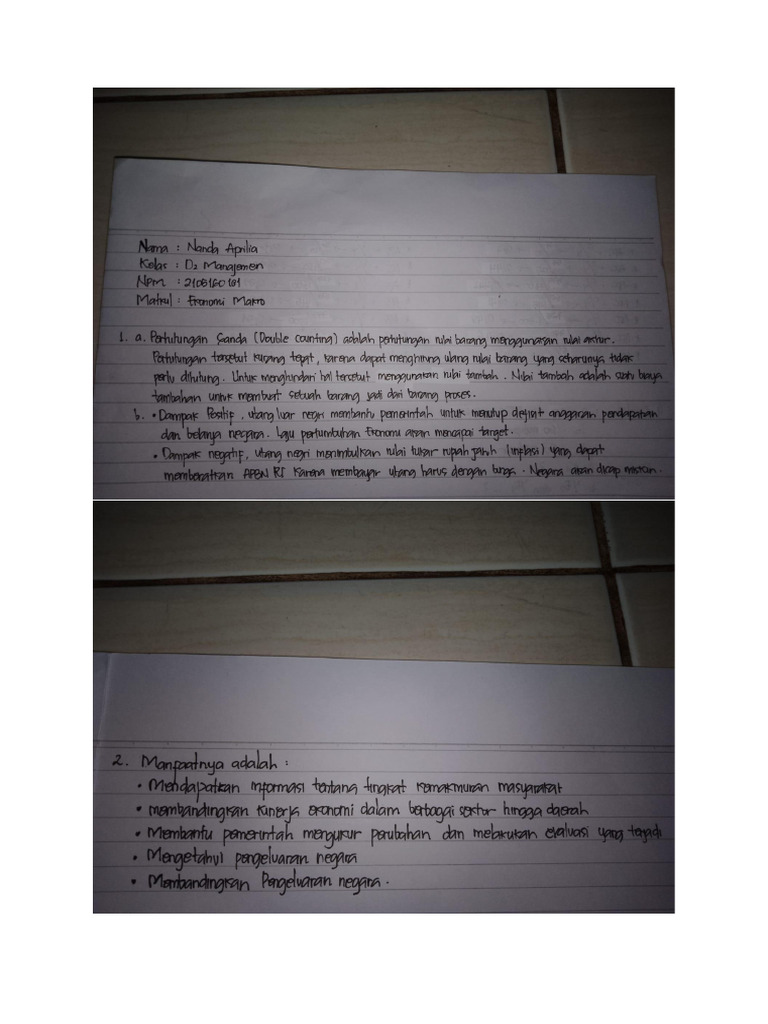 Nama : Nanda Aprilia
Kelas : D2 Manajemen
NPM : 2108160181
Matkul : Ekonomi Makro
1. a. Perhitungan Ganda (Double counting) adalah perhitungan nilai barang menggunakan nilai akhir.
Perhitungan tersebut kurang tepat, karena dapat menghitung ulang nilai barang yang seharusnya tidak
perlu dihitung. Untuk menghindari hal tersebut menggunakan nilai tambah. Nilai tambah adalah suatu biaya
tambahan untuk membuat sebuah barang jadi dari barang proses.
b. • Dampak Positif, utang luar negri membantu pemerintah untuk menutup defisit anggaran pendapatan
dan belanja negara. Laju pertumbuhan Ekonomi akan mencapai target.
• Dampak negatif, utang negri menimbulkan nilai tukar rupiah jatuh (inflasi) yang dapat
memberatkan APBN RI karena membayar utang harus dengan bunga. Negara akan dicap miskin.
2. Manfaatnya adalah :
• Mendapatkan informasi tentang tingkat kemakmuran masyarakat
• membandingkan kinerja ekonomi dalam berbagai sektor hingga daerah
• Membantu pemerintah mengukur perubahan dan melakukan evaluasi yang terjadi
• Mengetahui pengeluaran negara
• Membandingkan Pengeluaran negara.